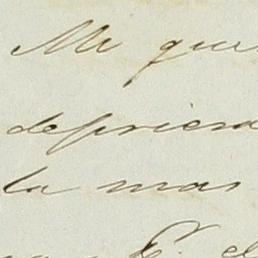 Me que
depriera
la mas
E. el